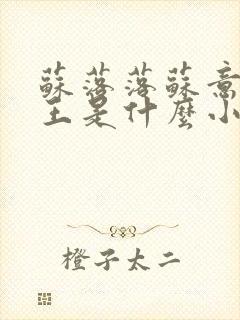 蘇落落蘇意
主是什麼小
橙子太二